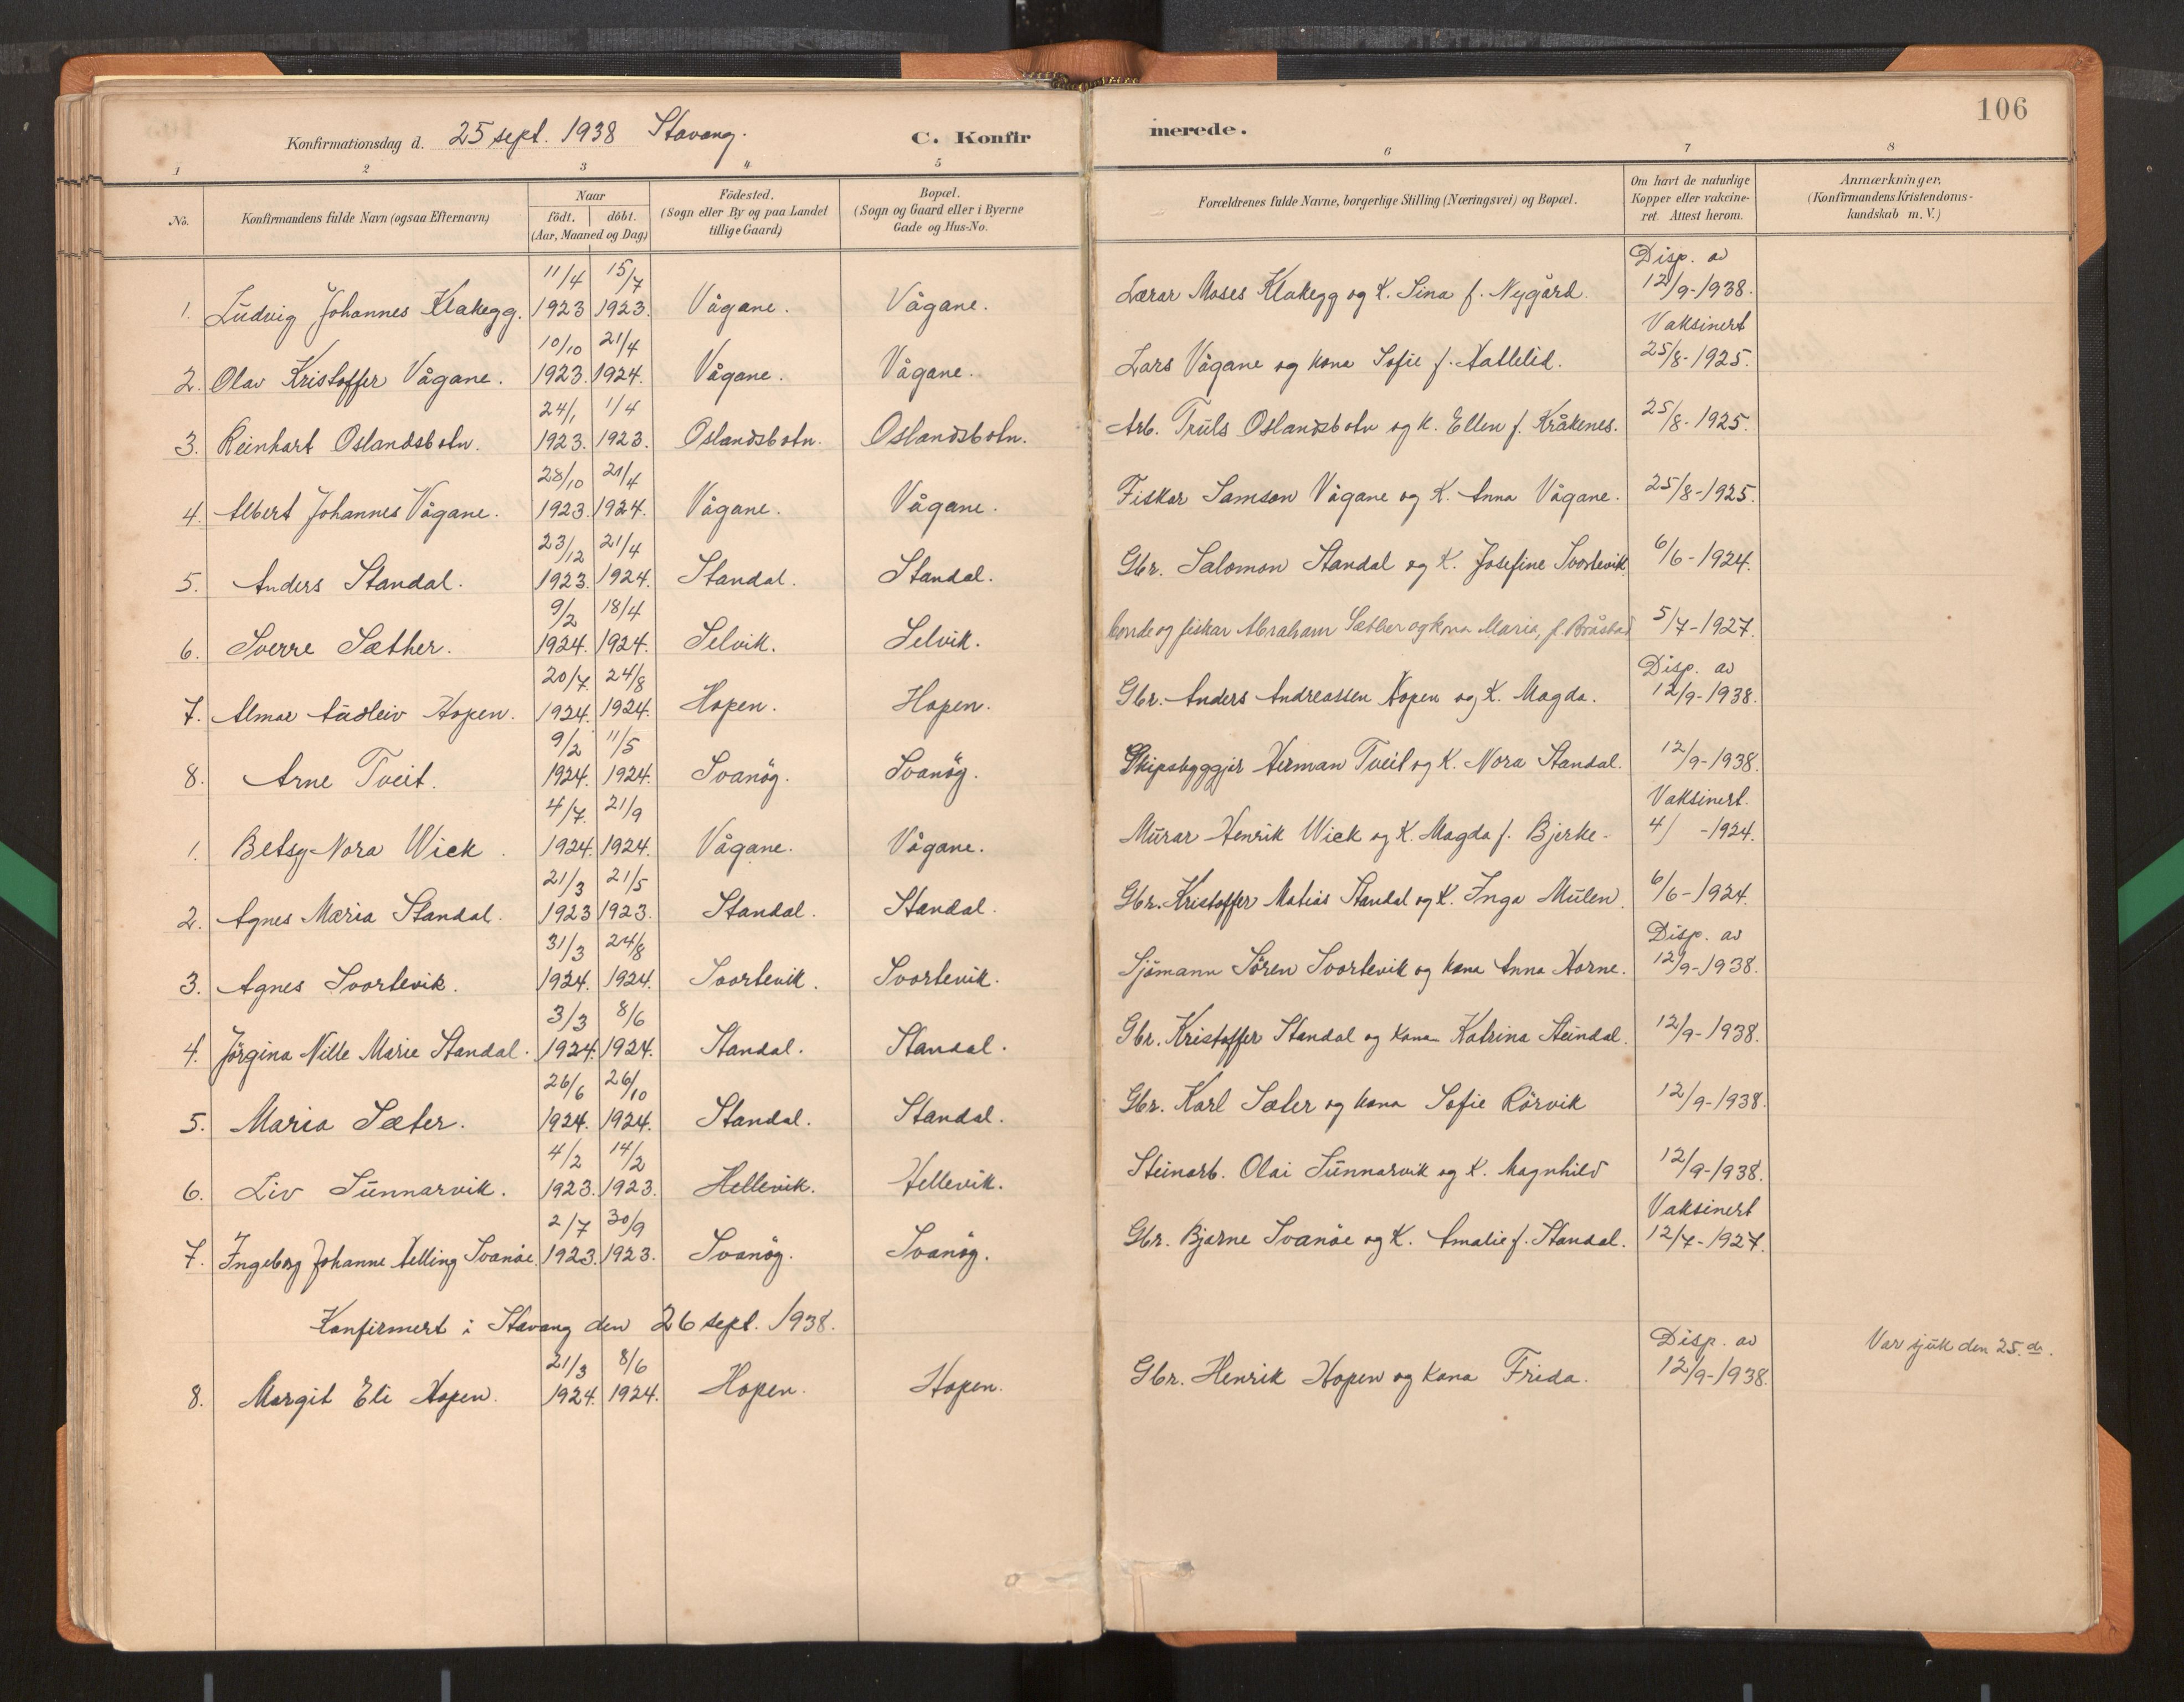 106
Konfirmationsdag d. 25 sept. 1938 Stavang.
C. Konfirmerede.
1 2 3 4 5 6 7 8
No.
Konfirmandens fulde Navn (ogsaa Efternavn)
Naar
födt. döbt.
(Aar, Maaned og Dag)
Födested.
(Sogn eller By og paa Landet
tillige Gaard)
Bopæl.
(Sogn og Gaard eller i Byerne
Gade og Hus-No.
Forældrenes fulde Navne, borgerlige Stilling (Næringsvei) og Bopæl.
Om havt de naturlige
Kopper eller vakcine-
ret. Attest herom.
Anmærkninger,
(Konfirmandens Kristendoms-
kundskab m. V.)
11/4 15/7 Disp. av
1. Ludvig Johannes Klakegg. 1923 1923. Vågane. Vågane. Lærar Moses Klakegg og K. Sina f. Nygård. 12/9-1938.
10/10 21/4 Vaksinert
2. Olav Kristoffer Vågane. 1923. 1924. Vågane. Vågane. Lars Vågane og kona Sofie f. Hatlelid. 25/8-1925.
24/1 1/4
3. Reinhart Oslandsbotn. 1923. 1923. Oslandsbotn. Oslandsbotn. Arb. Truls Oslandsbotn og K. Ellen f. Kråkenes. 25/8-1925.
28/10 21/4
4. Albert Johannes Vågane. 1923. 1924. Vågane. Vågane. Fiskar Samson Vågane og K. Anna Vågane. 25/8-1925.
23/12 21/4
5. Anders Standal. 1923. 1924. Standal. Standal. Gbr. Salomon Standal og K. Josefine Svortevik. 6/6-1924.
9/2 18/4
6. Sverre Sæther. 1924. 1924. Selvik. Selvik. bonde og fiskar Abraham Sæther og kona Maria, f. Bråstad 5/7-1927.
20/7 24/8 Disp. av
7. Almar Audleiv Hopen. 1924. 1924. Hopen. Hopen. Gbr. Anders Andreassen Hopen og K. Magda. 12/9-1938.
9/2 11/5
8. Arne Tveit. 1924. 1924. Svanöy. Svanöy. Skipsbyggjar Herman Tveit og K. Nora Standal. 12/9-1938.
4/7. 21/9 Vaksinert.
1. Betsy Nora Wick. 1924. 1924. Vågane. Vågane. Murar Henrik Wick og K. Magda f. Bjerke- 4/ -1924.
21/3 21/5
2. Agnes Maria Standal. 1923 1923. Standal. Standal. Gbr. Kristoffer Matias Standal og K. Inga Mulen. 6/6-1924.
31/3 24/8 Disp. av
3. Agnes Svortevik. 1924. 1924. Svortevik. Svortevik. Sjömann Sören Svortevik og kona Anna Horne. 12/9-1938.
3/3 8/6
4. Jörgina Nille Marie Standal. 1924. 1924. Standal. Standal. Gbr. Kristoffer Standal og kona Katrina Steindal. 12/9-1938.
26/6 26/10
5. Maria Sæter. 1924. 1924. Standal. Standal. Gbr. Karl Sæter og kona Sofie Rörvik 12/9-1938.
4/2 14/2
6. Liv Sunnarvik. 1923. 1923. Hellevik. Hellevik. Steinarb. Olai Sunnarvik og K. Magnhild 12/9-1938.
2/7 30/9 Vaksinert
7. Ingeborg Johanne Helling Svanøe. 1923. 1923. Svanöy. Svanöy. Gbr. Bjarne Svanøe og K. Amalie f. Standal. 12/7-1927.
Konfirmert i Stavang den 26 sept. 1938.
21/3 8/6 Disp. av
8. Margit Eli Hopen. 1924. 1924. Hopen. Hopen. Gbr. Henrik Hopen og kona Frida. 12/9-1938. Var sjuk den 25. ds.